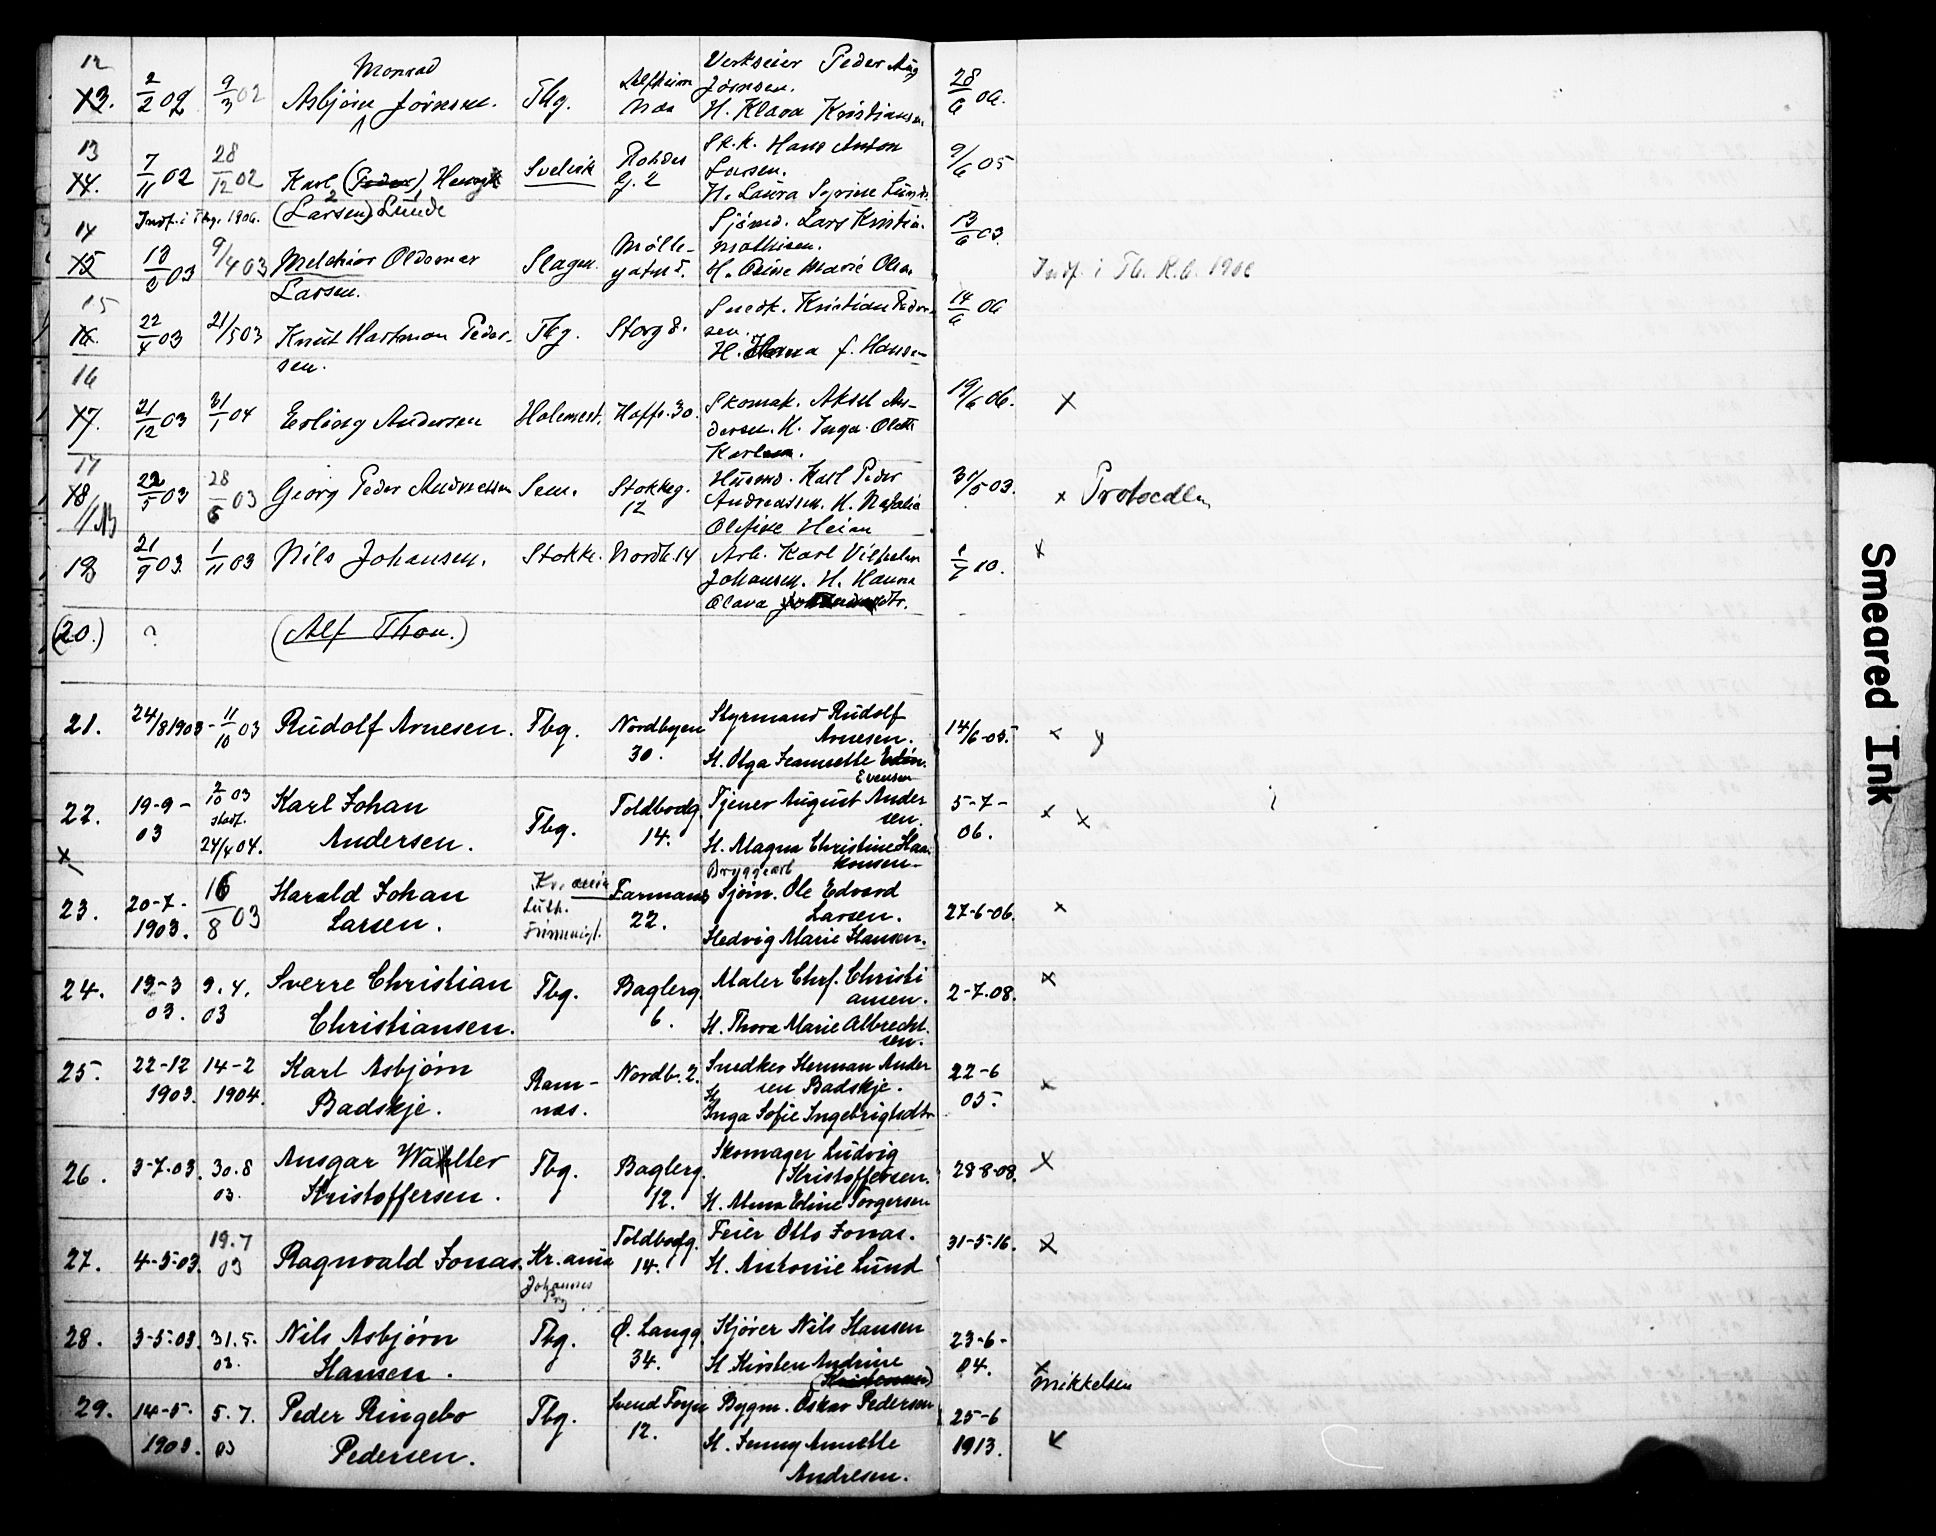 12 Monrad Verkseier Peder Aug
13. 2/2 02 9/3 02 Asbjörn Jörnsen. Tbg. Jörnsen. 28/6 06.
H. Klara Kristiansen
13 7/11 02 28/12 02 Svelvik G. 2 Sk.k. Hans Anton 9/6 05
14. Karl (Peder) Larsen.
Indf. i Tbg. 1906. (Larsen) Lunde H. Laura
14 Sjömd. Lars Kristian 13/6 03.
15 9/4 03 Melchior Oldemar Slagen. Mölle- Mathisen.
Larsen. gaten 5. H. Marie Olsen Indf. i Tb. K.b. 1906
15 22/4 03 21/5 03 Knut Hartman Peder- Tbg. Storg 8. Snedk. Kristian Peder- 14/6 06
16. sen. sen.
H. f. Hansen
16 21/12 03 31/1 04 Erling Andersen Holmest. 30. Skomak. Aksel An- 19/6 06. x
17. dersen. H. Inga Olette
Karlsen.
17 22/5 03 28/6 03 Georg Peder Andreassen Sem. Stokkeg. Karl Peder 31/5 03. x Protocollen
18 12 Andreassen. H. Natalie
Olefine Heian
19 21/9 03 1/11 03 Nils Johansen. Stokke. Nordb. 14 Arb. Karl Vilhelm 10. x
Johansen. H. Hanna
Olava
(20.) ? (Alf Thon.)
21. 24/8 1903 - 11/10 03 Rudolf Arnesen. Tbg. Nordbyen Styrmand Rudolf 14/6-05. x y
30. Arnesen.
H. Olga Jeannette
Evensen
22. 19-9- 2/10 03 Karl Johan Tbg. Toldbodg. Tjener August Ander 5-7- x x
03 stadf. Andersen. 14. sen. 06.
x 24/4 04. H. Magna Christine Haa
Bryggearb. konsen.
23. 20-7- 16/8 03 Harald Johan Kr.ania Farmans Sjöm. Ole Edvard 27-6-06. x
1903. Larsen. Luth. 22. Larsen.
Frimenigh. Hedvig Marie Hansen.
24. 19-3 9.4. Sverre Christian Tbg. Baglerg. Maler Chrf. Christi 2-7.08. x
03. 03 Christiansen. 6. ansen.
H. Thora Marie Albrecht
sen.
25. 22-12 14-2 Karl Asbjörn Ram- Nordb. 2. Snedker Herman Ander 22-6 x
1903. 1904. Badskje. næs. sen Badskje. 05.
H. Inga Sofie Ingebrigtsdtr
26. 3-7.03. 30.8 Ansgar Wahlter Tbg. Baglerg. Skomager Ludvig 28-8-08. x
03. Kristoffersen. 12. Kristoffersen.
H. Alma Eline Torgersen
27. 4-5-03. 19.7 Ragnvald Jonas. Kr.ania Toldbodg. Feier Otto Jonas. 31-5-16. x
03 Johannes 14. H. Antonie Lund
28. 3-5-03. 31.5. Nils Asbjörn Tbg. Ö. Langg. Kjörer Nils Hansen 23-6-
03. Hansen. 34. H Kirsten Andrine 04. x
Mikkelsen
29. 14-5. 5.7. Peder Ringebo Tbg. Svend Foyn Bygm. Oskar Pedersen 25-6 x
1903. 03 Pedersen. 12. H. Jenny Annette 1913.
Andresen.
Smeared Ink